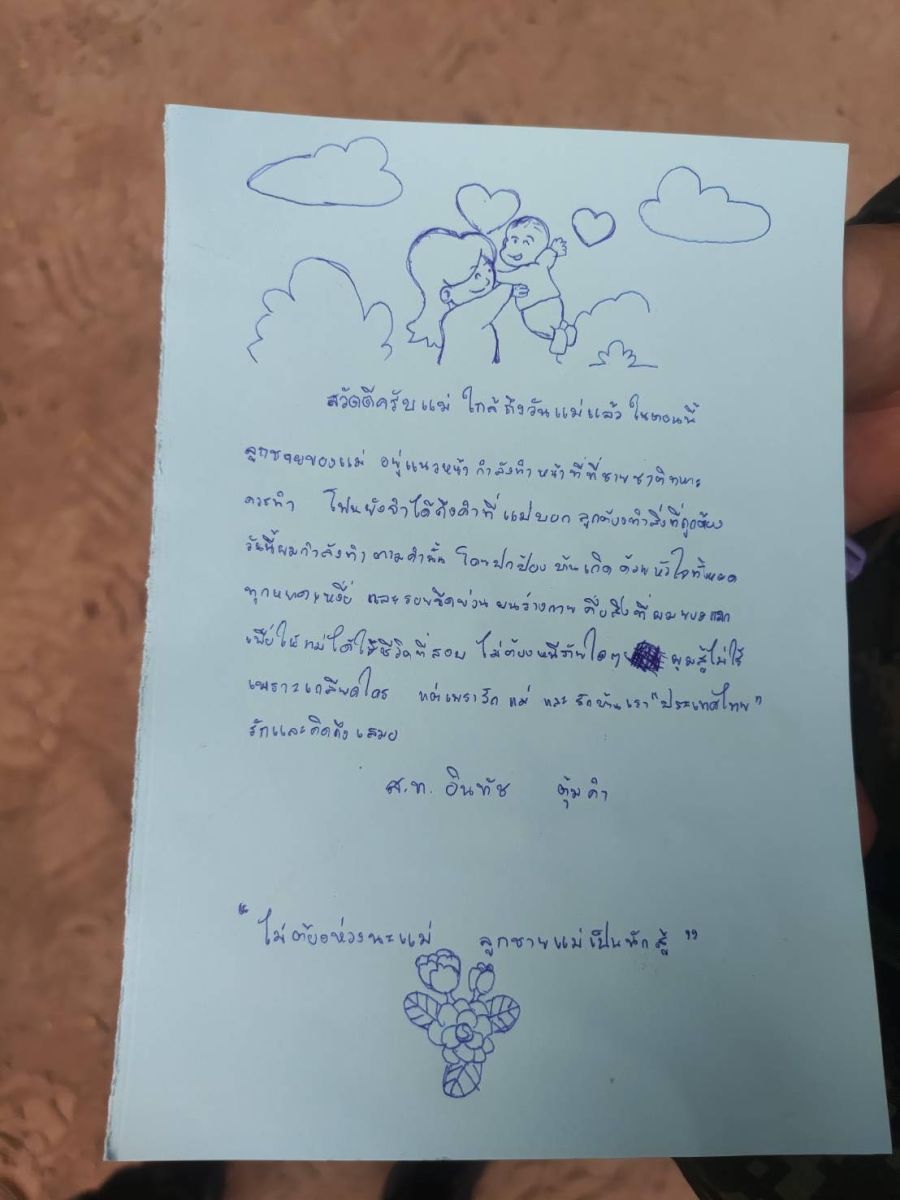 สวัดดีครับแม่ ใกล้ถึงวันแม่แล้ว ในตอนนี้
ลูกชายของแม่ อยู่แนวหน้า กำลังทำหน้าที่ที่ชายชาติทหาร
ควรทำ โฟนยังจำได้ถึงคำที่แม่บอก ลูกต้องทำสิ่งที่ถูกต้อง
วันนี้ผมกำลังทำตามคำนั้น โดยปกป้องบ้านเกิด ด้วยหัวใจทั้งหมด
ทุกหยาดเหงื่อ และรอยขีดข่วนบนร่างกาย คือสิ่งที่ผมยอมแลก
เพื่อให้แม่ได้ใช้ชีวิตที่สงบ ไม่ต้องหนีภัยใดๆ ผมสู้ไม่ใช่
เพราะเกลียดใคร แต่เพราะรักแม่ และรักบ้านเรา "ประเทศไทย"
รักและคิดถึงเสมอ
ส.ท. อินทัช ตุ้มคำ
"ไม่ต้องห่วงนะแม่ ลูกชายแม่เป็นนักสู้"